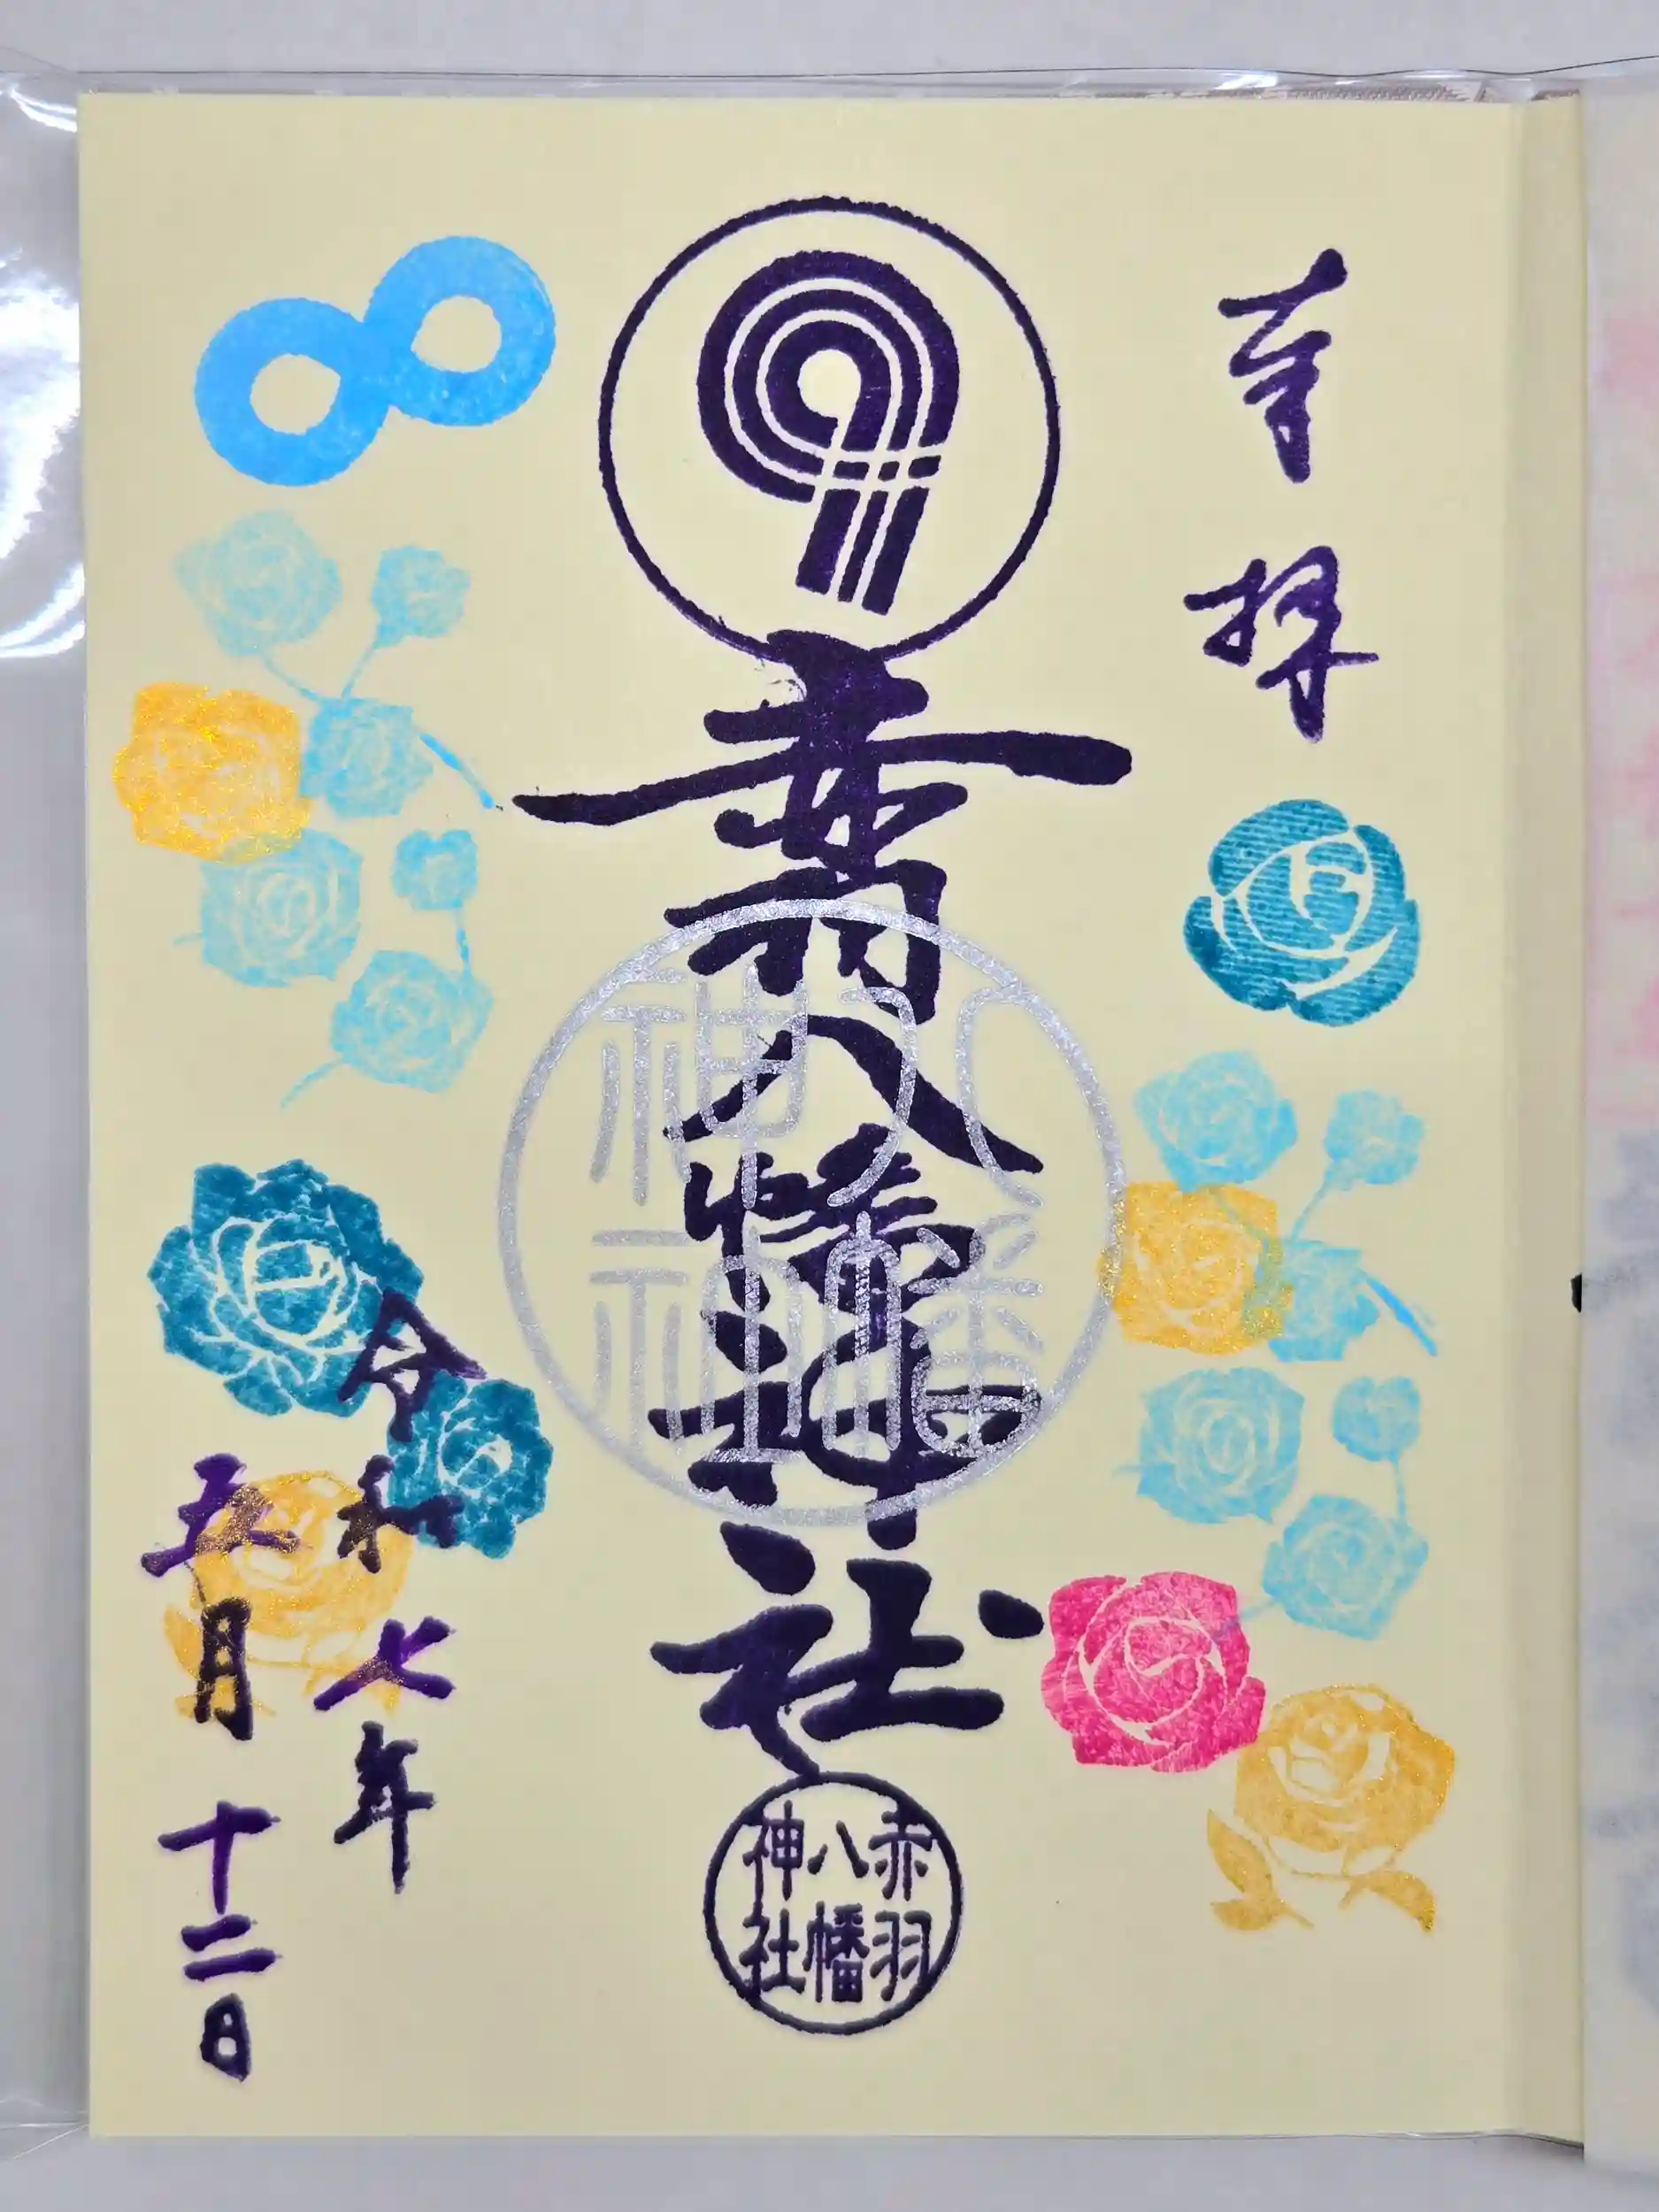 奉拝
赤羽八幡神社
八幡
神社
赤羽
八幡
神社
令和七年
五月十二日